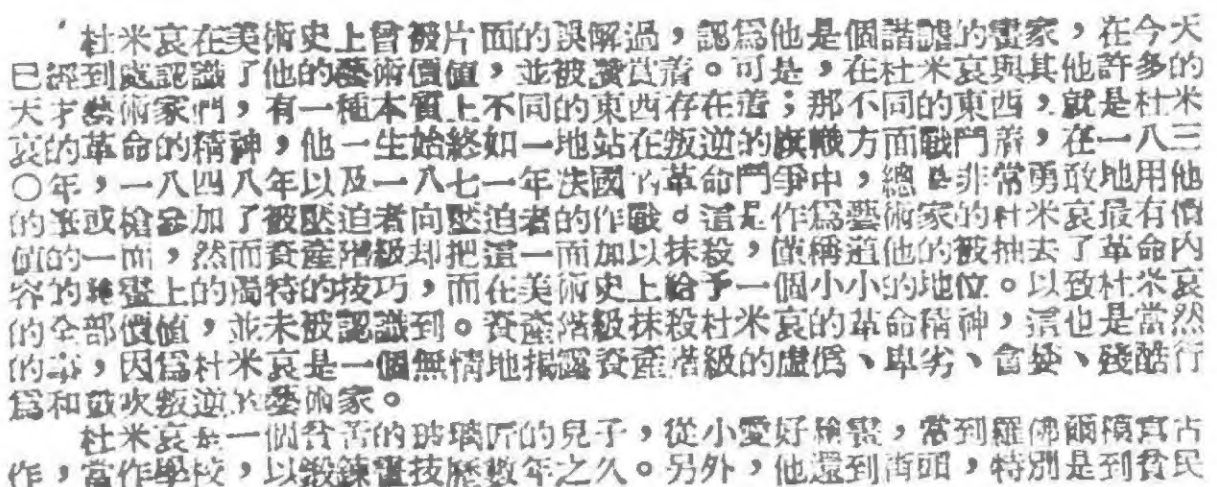 杜米哀在美術史上曾被片面的誤解過，認爲他是個諧謔的畫家，在今天
已經到處認識了他的藝術價值，並被讚賞着。可是，在杜米哀與其他許多的
天才藝術家們，有一種本質上不同的東西存在着；那不同的東西，就是杜米
哀的革命的精神，他一生始終如一地站在叛逆的旗幟方面戰鬥着，在一八三
〇年，一八四八年以及一八七一年法國的革命鬥爭中，總是非常勇敢地用他
的筆或槍參加了被壓迫者向壓迫者的作戰。這是作爲藝術家的杜米哀最有價
值的一面，然而資產階級却把這一面加以抹殺，僅稱道他的被抽去了革命內
容的繪畫上的獨特的技巧，而在美術史上給予一個小小的地位。以致杜米哀
的全部價值，並未被認識到。資產階級抹殺杜米哀的革命精神，這也是當然
的事，因爲杜米哀是一個無情地揭露資產階級的虛僞、卑劣、貪婪、殘酷行
爲和鼓吹叛逆的藝術家。
杜米哀是一個貧苦的玻璃匠的兒子，從小愛好繪畫，常到羅佛爾積寫古
作，當作學校，以鍛鍊畫技歷數年之久。另外，他還到街頭，特別是到貧民